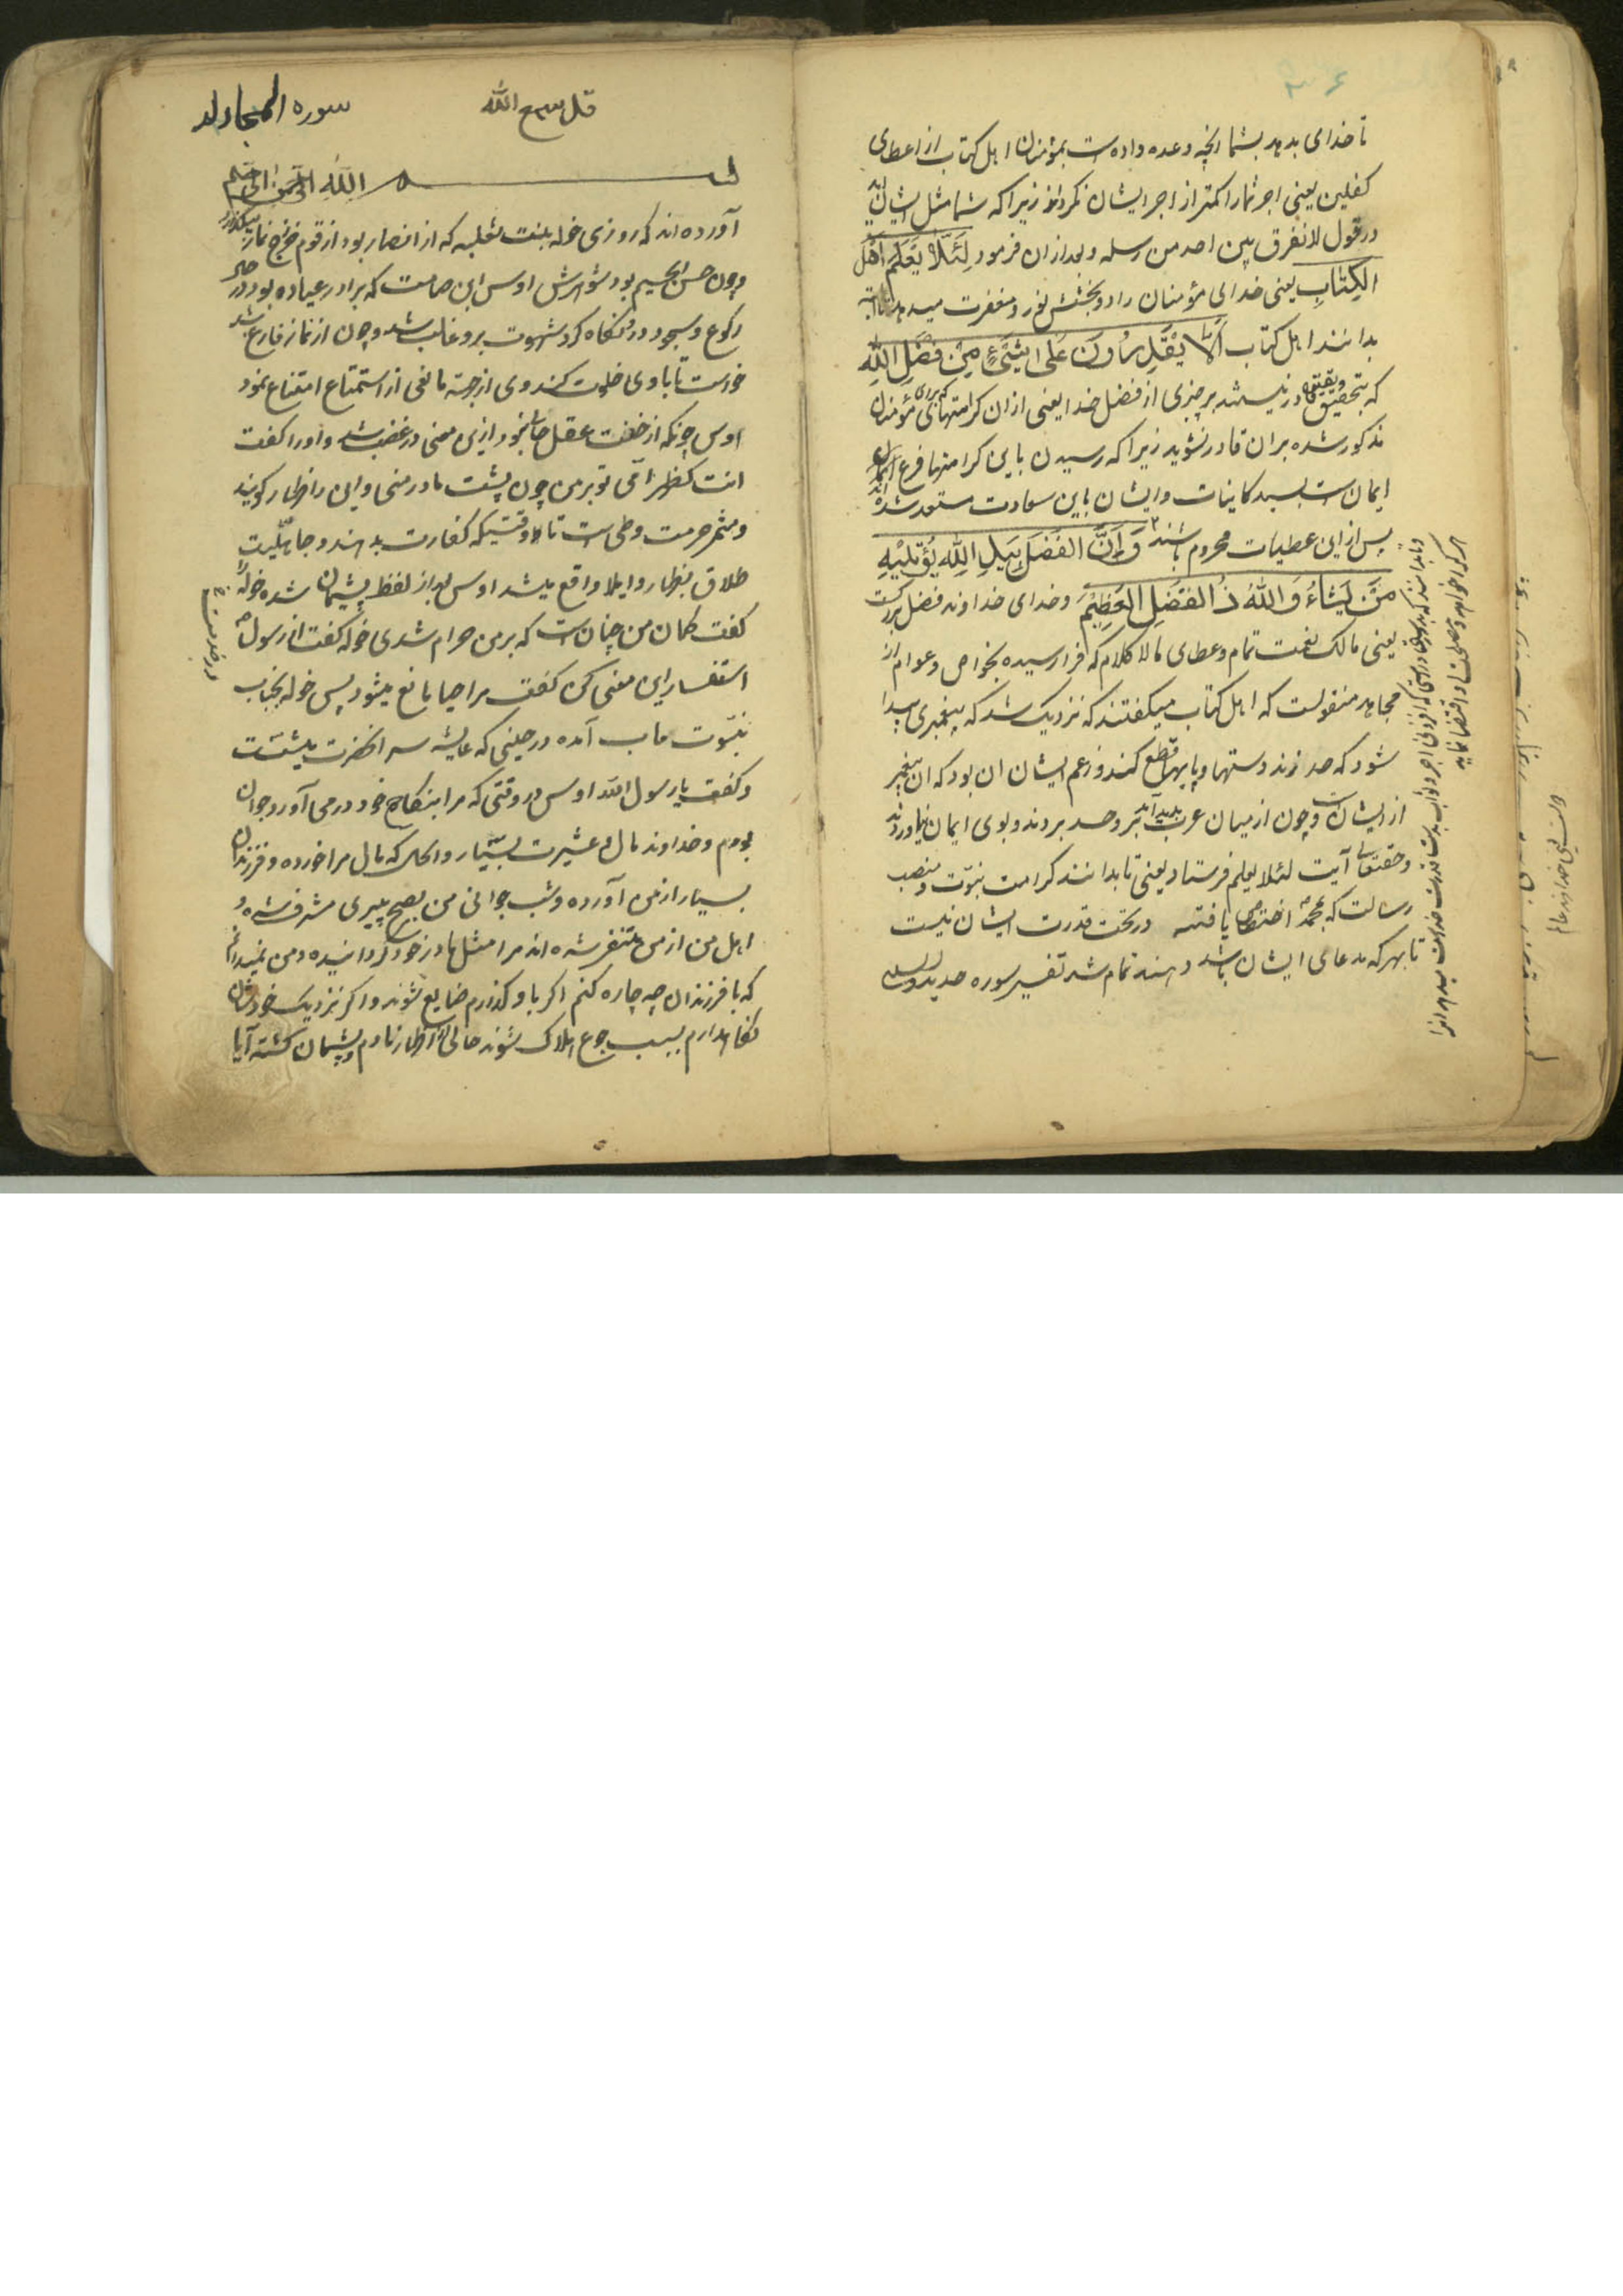 تا خدای بدهد بشما انچه وعده داده است بمؤمنان اهل کتاب از اعطای
کفلین یعنی اجر شما را کمتر از اجر ایشان نکرداند زیرا که شما مثل ایشان اید
در قول لا نفرق بین احد من رسله و بعد از ان فرمود لِئَلَّا یَعْلَمَ اَهْلُ
الکِتٰابِ یعنی خدای مؤمنان را دو بخشش نور و مغفرت میدهد تا
بدانند اهل کتاب اَلّا یَقْدِرُونَ عَلی شَیْءٍ مِنْ فَضْلِ اللّٰهِ
که بتحقیق قادر نیستند بر چیزی از فضل خدا یعنی از ان کرامتهای که برای مؤمنان
مذکور شده بران قادر نشوید زیرا که رسیدن باین کرامتها فرع
ایمان است بسید کاینات و ایشان باین سعادت مستعد نشده اند
پس از این عطیات محروم باشند وَ اِنَّ الفَضْلَ بِیَدِ اللّٰهِ یُؤْتِیْهِ
مَنْ یَشٰاءُ وَ اللّٰهُ ذُ الفَضْلِ العَظِیْمِ و خدای خداوند فضل بزرکست
یعنی مالک نعمت تمام و عطای مالا کلام که فرا رسیده بخواص و عوام از
مجاهد منقولست که اهل کتاب میکفتند که نزدیک شد که پیغمبری پیدا
شود که حد زند و دستها و پایها قطع کند و زعم ایشان ان بود که ان پیغمبر
از ایشانست و چون از میان عرب پدید آمد برو حسد بردند و بوی ایمان نیاوردند
و حقتعالی آیت لئلا یعلم فرستاد یعنی تا بدانند کرامت نبوّت و منصب
رسالت که بمحمد اختصاص یافته در تحت قدرت ایشان نیست
تا بهر که مدعای ایشان باشد دهند تمام شد تفسیر سوره حدید
قل سمع اللّٰه
سوره المجادله
بسم اللّٰه الرحمن الرحیم
آورده اند که روزی خوله بنت ثعلبه که از انصار بود از قوم خزرج نماز میکذارد
و چون حسن الجسیم بود شوهرش اوس ابن صامت که برادر عباده بود در حال
رکوع و سجود درو نکاه کرد شهوت برو غالب شد و چون از نماز فارغ شد
خواست تا با وی خلوت کند وی از جهة مانعی از استمتاع امتناع نمود
اوس چونکه از خفت عقل خالی نبود ازین معنی در غضب شد و او را کفت
انت کظهر امّی تو بر من چون پشت مادر منی و این را ظهار کویند
و مثمر حرمت وطی است تا وقتیکه کفارت بدهند و جاهلیت
طلاق بظهار و ایلا واقع میشد اوس بعد از لفظ پشیمان شده خوله را
کفت کمان من چنان است که بر من حرام شدی خوله کفت از رسول
استفسار این معنی کن کفت مرا حیا مانع میشود پس خوله بجناب
نبوّت ماب آمده در حینی که عایشه سر انحضرت میشست
و کفت یا رسول اللّٰه اوس در وقتی که مرا بنکاح خود درمی آورد جوان
بودم و خداوند مال و عشیرت بسیار و الحال که مال مرا خورده و فرزندان
بسیار از من آورده و شب جوانی من بصبح پیری مشرف شده و
اهل من از من متنفر شده اند مرا مثل مادر خود کردانیده و من نمیدانم
که با فرزندان چه چاره کنم اکر باو کذارم ضایع شوند و اکر نزدیک خودشان
نکاهدارم بسبب جوع هلاک شوند حالی از ظهار نادم و پشیمان کشته آیا